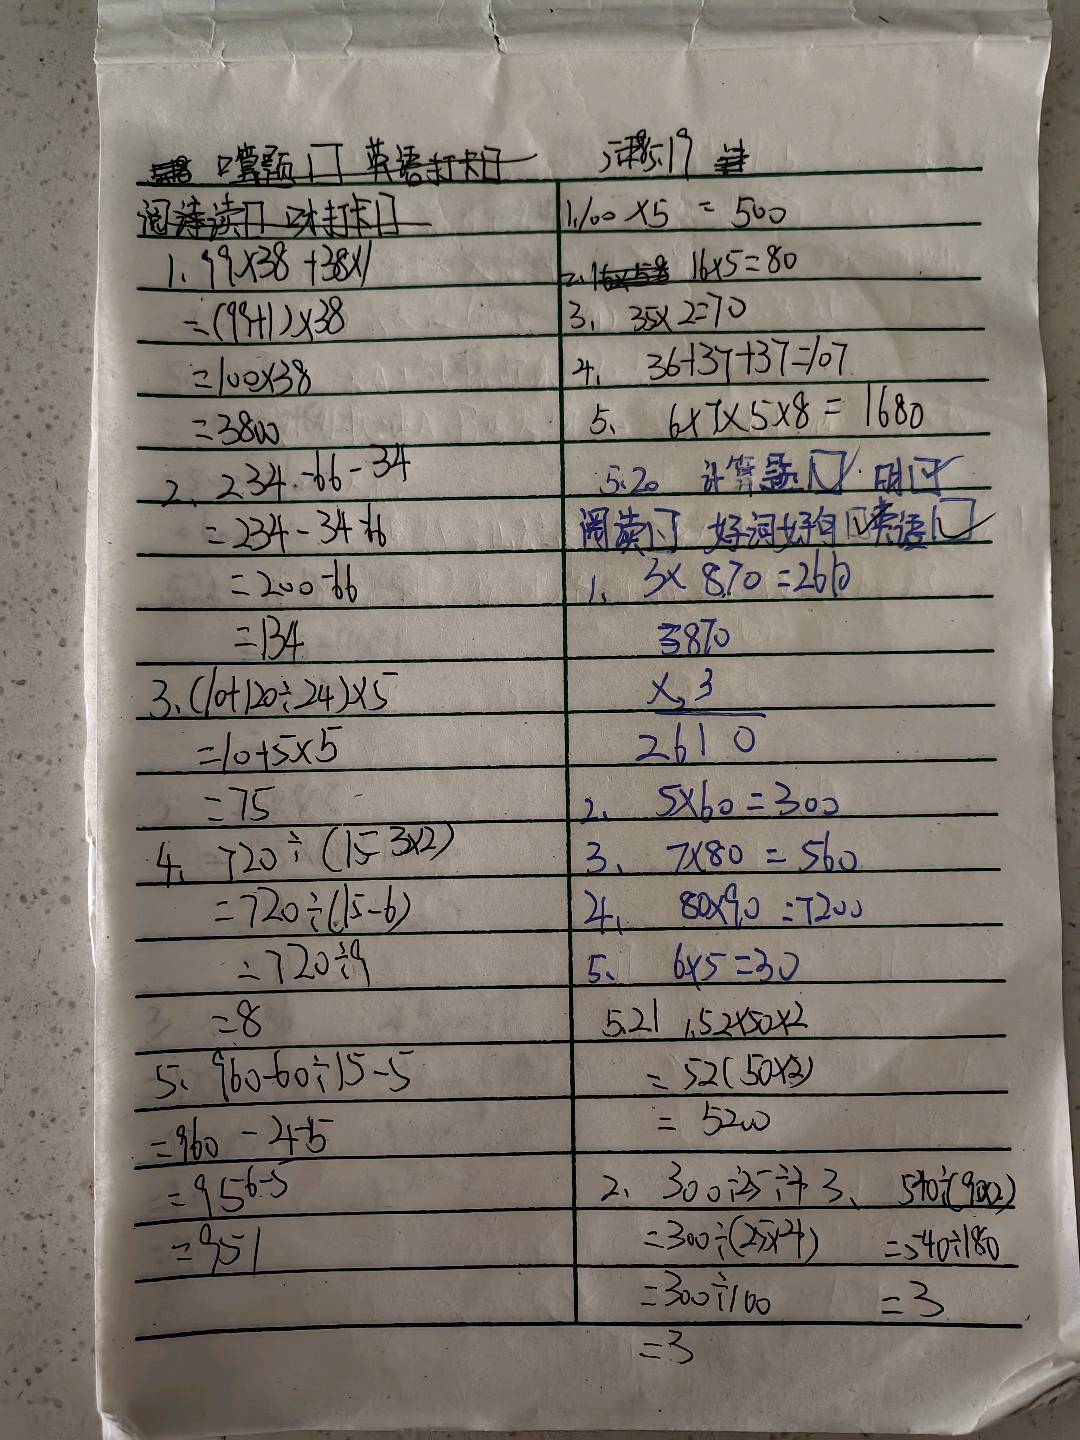 口算题口 英语打卡口
阅读口 打卡口
1、99×38+38×1
=(99+1)×38
=100×38
=3800
2、234-66-34
=234-34-66
=200-66
=134
3、(10+120÷24)×5
=10+5×5
=75
4、720÷(15-3×2)
=720÷(15-6)
=720÷9
=8
5、960-60÷15-5
=960-4-5
=956-5
=951
5.19
1、100×5=500
2、16×5=80
3、35×2=70
4、36+37+37=107
5、6×7×5×8=1680
5.20 计算题口
阅读口 好词好句口 英语口
1、3×870=2610
870
×3
2610
2、5×60=300
3、7×80=560
4、80×90=7200
5、6×5=30
5.21 1、52×50×2
=52(50×2)
=5200
2、300÷25÷4
=300÷(25×4)
=300÷100
=3
3、540÷(90×2)
=540÷180
=3